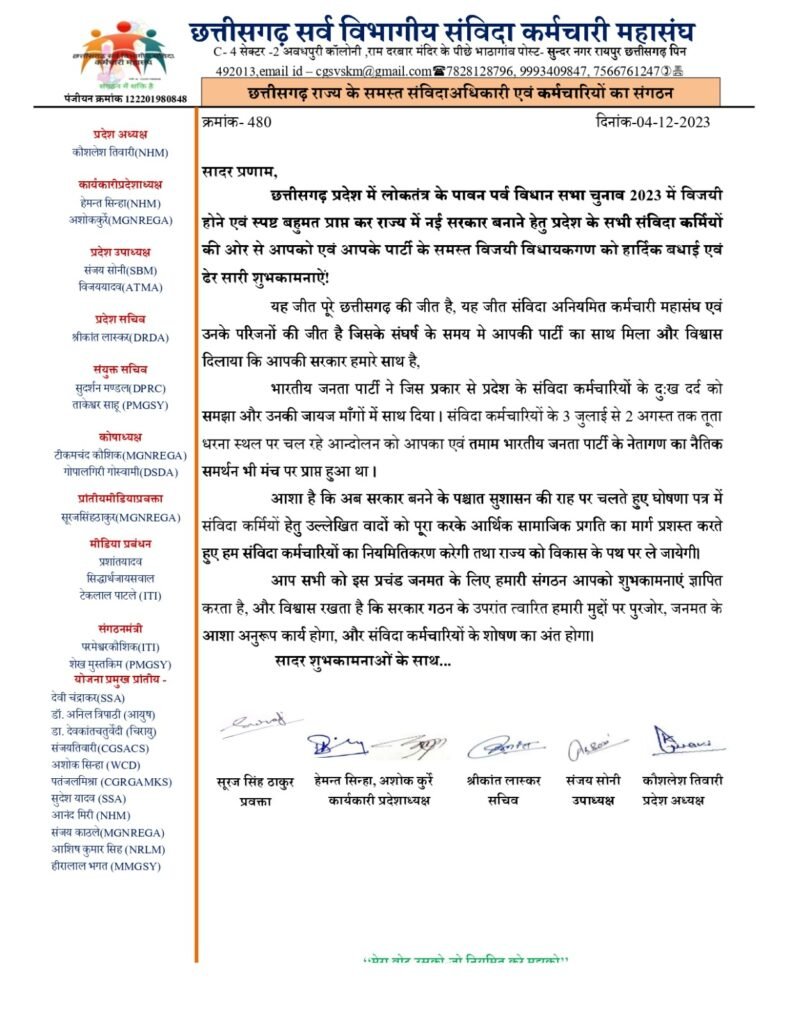 छत्तीसगढ़ सर्व विभागीय संविदा कर्मचारी महासंघ
C- 4 सेक्टर -2 अवधपुरी कॉलोनी ,राम दरबार मंदिर के पीछे भाठागांव पोस्ट- सुन्दर नगर रायपुर छत्तीसगढ़ पिन
492013,email id – cgsvskm@gmail.com☎7828128796, 9993409847, 7566761247
छत्तीसगढ़ सर्व विभागीय संविदा
कर्मचारी महासंघ
संगठन में शक्ति है
पंजीयन क्रमांक 122201980848
छत्तीसगढ़ राज्य के समस्त संविदाअधिकारी एवं कर्मचारियों का संगठन
प्रदेश अध्यक्ष
कौशलेश तिवारी(NHM)
कार्यकारीप्रदेशाध्यक्ष
हेमन्त सिन्हा(NHM)
अशोककुर्रे(MGNREGA)
प्रदेश उपाध्यक्ष
संजय सोनी(SBM)
विजययादव(ATMA)
प्रदेश सचिव
श्रीकांत लास्कर(DRDA)
संयुक्त सचिव
सुदर्शन मण्डल(DPRC)
ताकेश्वर साहू (PMGSY)
कोषाध्यक्ष
टीकमचंद कौशिक(MGNREGA)
गोपालगिरी गोस्वामी(DSDA)
प्रांतीयमीडियाप्रवक्ता
सूरजसिंहठाकुर(MGNREGA)
मीडिया प्रबंधन
प्रशांतयादव
सिद्धार्थजायसवाल
टेकलाल पाटले (ITI)
संगठनमंत्री
परमेश्वरकौशिक(ITI)
शेख मुस्तकिम (PMGSY)
योजना प्रमुख प्रांतीय -
देवी चंद्राकर(SSA)
डॉ. अनिल त्रिपाठी (आयुष)
डा. देवकांतचतुर्वेदी (चिरायु)
संजयतिवारी(CGSACS)
अशोक सिन्हा (WCD)
पतंजलमिश्रा (CGRGAMKS)
सुदेश यादव (SSA)
आनंद मिरी (NHM)
संजय काठले(MGNREGA)
आशिष कुमार सिंह (NRLM)
हीरालाल भगत (MMGSY)
क्रमांक- 480 दिनांक-04-12-2023
सादर प्रणाम,
छत्तीसगढ़ प्रदेश में लोकतंत्र के पावन पर्व विधान सभा चुनाव 2023 में विजयी
होने एवं स्पष्ट बहुमत प्राप्त कर राज्य में नई सरकार बनाने हेतु प्रदेश के सभी संविदा कर्मियों
की ओर से आपको एवं आपके पार्टी के समस्त विजयी विधायकगण को हार्दिक बधाई एवं
ढेर सारी शुभकामनाऐं!
यह जीत पूरे छत्तीसगढ़ की जीत है, यह जीत संविदा अनियमित कर्मचारी महासंघ एवं
उनके परिजनों की जीत है जिसके संघर्ष के समय मे आपकी पार्टी का साथ मिला और विश्वास
दिलाया कि आपकी सरकार हमारे साथ है,
भारतीय जनता पार्टी ने जिस प्रकार से प्रदेश के संविदा कर्मचारियों के दुःख दर्द को
समझा और उनकी जायज माँगों में साथ दिया। संविदा कर्मचारियों के 3 जुलाई से 2 अगस्त तक तूता
धरना स्थल पर चल रहे आन्दोलन को आपका एवं तमाम भारतीय जनता पार्टी के नेतागण का नैतिक
समर्थन भी मंच पर प्राप्त हुआ था।
आशा है कि अब सरकार बनने के पश्चात सुशासन की राह पर चलते हुए घोषणा पत्र में
संविदा कर्मियों हेतु उल्लेखित वादों को पूरा करके आर्थिक सामाजिक प्रगति का मार्ग प्रशस्त करते
हुए हम संविदा कर्मचारियों का नियमितिकरण करेगी तथा राज्य को विकास के पथ पर ले जायेगी।
आप सभी को इस प्रचंड जनमत के लिए हमारी संगठन आपको शुभकामनाएं ज्ञापित
करता है, और विश्वास रखता है कि सरकार गठन के उपरांत त्वारित हमारी मुद्दों पर पुरजोर, जनमत के
आशा अनुरूप कार्य होगा, और संविदा कर्मचारियों के शोषण का अंत होगा।
सादर शुभकामनाओं के साथ...
सूरज सिंह ठाकुर हेमन्त सिन्हा, अशोक कुर्रे श्रीकांत लास्कर संजय सोनी कौशलेश तिवारी
प्रवक्ता कार्यकारी प्रदेशाध्यक्ष सचिव उपाध्यक्ष प्रदेश अध्यक्ष